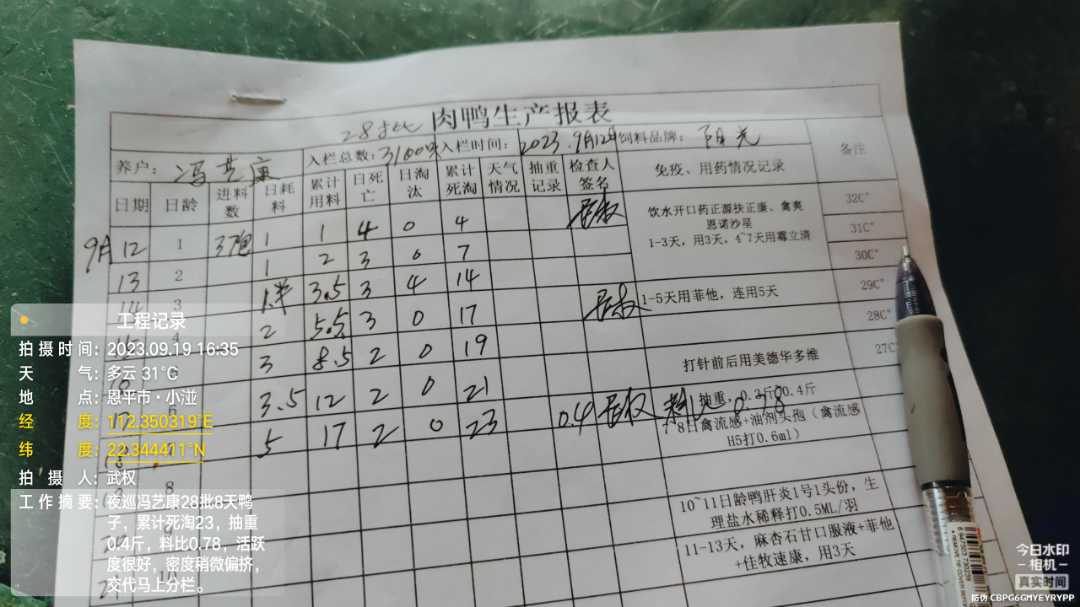 28批 肉鸭生产报表
养户: 冯艺康 入栏总数: 3100 入栏时间: 2023.9月12 饲料品牌: 阳光 备注
日期 日龄 进料数 日耗料 累计用料 日死亡 日淘汰 累计死淘 天气情况 抽重记录 检查人签名 免疫、用药情况记录
9月12 1 37包 1 1 4 0 4 32C°
饮水开口药正源扶正康、禽爽
恩诺沙星
1-3天，用3天，4~7天用霉立清
13 2 1 2 3 0 7 31C°
14 3 1半 3.5 3 4 14 30C°
2 5.5 3 0 17 1-5天用菲他，连用5天 29C°
3 8.5 2 0 19 28C°
3.5 12 2 0 21 打针前后用美德华多维 27C°
5 17 2 0 23 0.4 0.78
7-8日禽流感+油剂头孢（禽流感
H5打0.6ml）
8
10~11日龄鸭肝炎1号1头份，生
理盐水稀释打0.5ML/羽
11-13天，麻杏石甘口服液+菲他
+佳牧速康，用3天
工程记录
拍摄时间: 2023.09.19 16:35
天气: 多云 31℃
地点: 恩平市·小湴
经度: 112.350319°E
纬度: 22.344411°N
拍摄人: 武权
工作摘要: 夜巡冯艺康28批8天鸭
子，累计死淘23，抽重
0.4斤，料比0.78，活跃
度很好，密度稍微偏挤，
交代马上分栏。
今日水印
相机
真实时间
防伪 CBPG6GMYEYRYPP